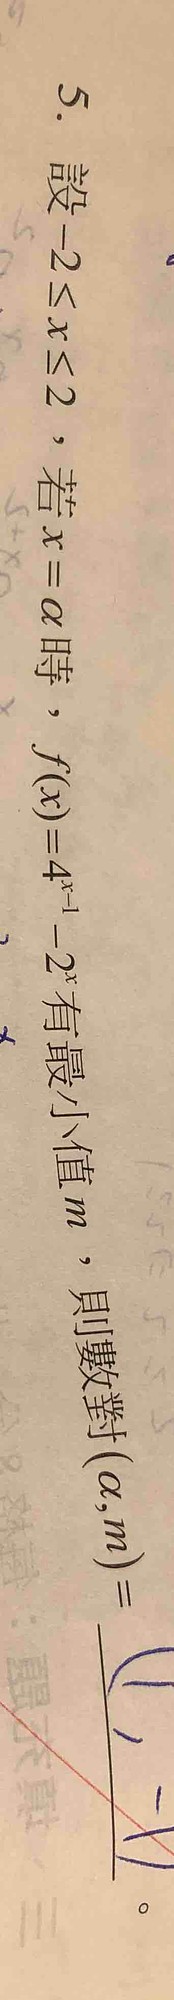 5. 設 -2 ≤ x ≤ 2，若 x = α 時，f(x) = 4^{x-1} - 2^x 有最小值 m，則數對 (α, m) = (1, -1)。